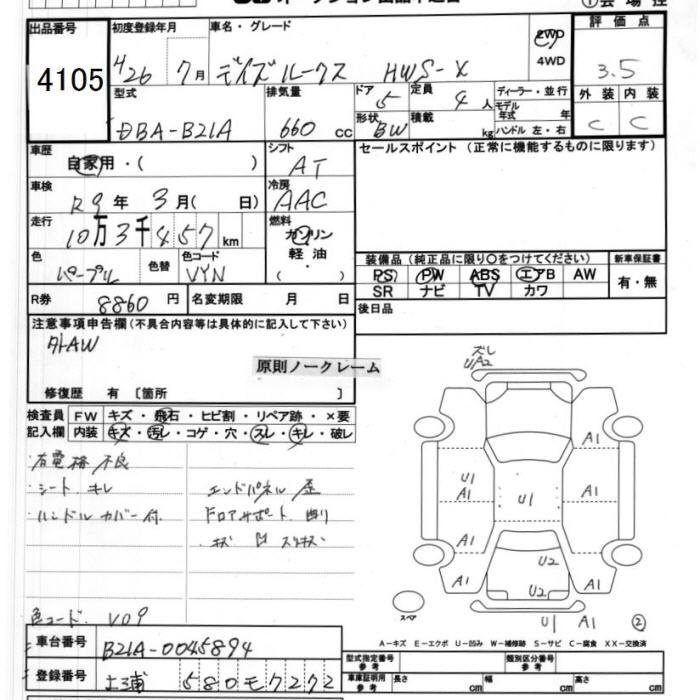 出品番号
4105
初度登録年月
H26年 7月
車名・グレード
デイズルークス HWS-X
2WD
4WD
評価点
3.5
外装 内装
C C
型式
DBA-B21A
排気量
660 cc
ドア
5
定員
4 人
形状
BW
積載
kg
ディーラー・並行
モデル年式 年
ハンドル 左・右
車歴
自家用・( )
シフト
AT
セールスポイント(正常に機能するものに限ります)
車検
R9年 3月( 日)
冷房
AAC
走行
10万3千457km
燃料
ガソリン
軽油
( )
色
パープル
色替
色コード
VYN
装備品(純正品に限り○をつけてください)
新車保証書
PS PW ABS エアB AW
SR ナビ TV カワ
有・無
R券
8860 円
名変期限 月 日
後日品
注意事項申告欄(不具合内容等は具体的に記入して下さい)
外AW
原則ノークレーム
修復歴 有〔箇所 〕
検査員
記入欄
FW キズ・飛石・ヒビ割・リペア跡・×要
内装 キズ・汚レ・コゲ・穴・スレ・キレ・破レ
充電格不良
・シート キレ
・ハンドルカバー付
エンドパネル 歪
ドロアサポート 曲り
色コード V09
ズレ
UA2
A1
A1
U1
A1
U1
A1
A1
A1
U2
U2
U1
A1
スペア
②
A-キズ E-エクボ U-凹み W-補修跡 S-サビ C-腐食 XX-交換済
車台番号
B21A-0045894
登録番号
土浦 580モ7272
型式指定番号
参考
類別区分番号
参考
車庫証明用
参考
長さ cm
幅 cm
高さ cm